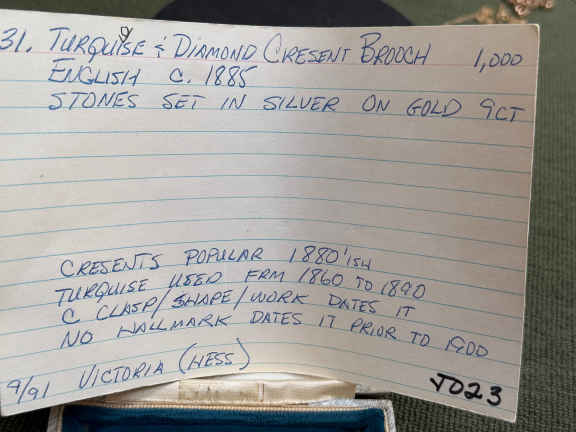 31. TURQUISE & DIAMOND CRESENT BROOCH 1,000
ENGLISH C. 1885
STONES SET IN SILVER ON GOLD 9CT
CRESENTS POPULAR 1880'ISH
TURQUISE USED FRM 1860 TO 1890
C CLASP/SHAPE/WORK DATES IT
NO HALLMARK DATES IT PRIOR TO 1900
9/91 VICTORIA (HESS)
JO23